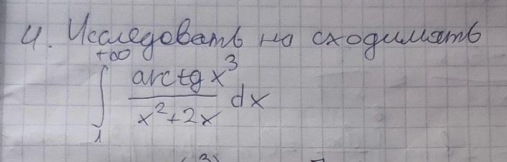 4. Исследовать на сходимость
+∞
∫ arctg x³ / x²+2x dx
1